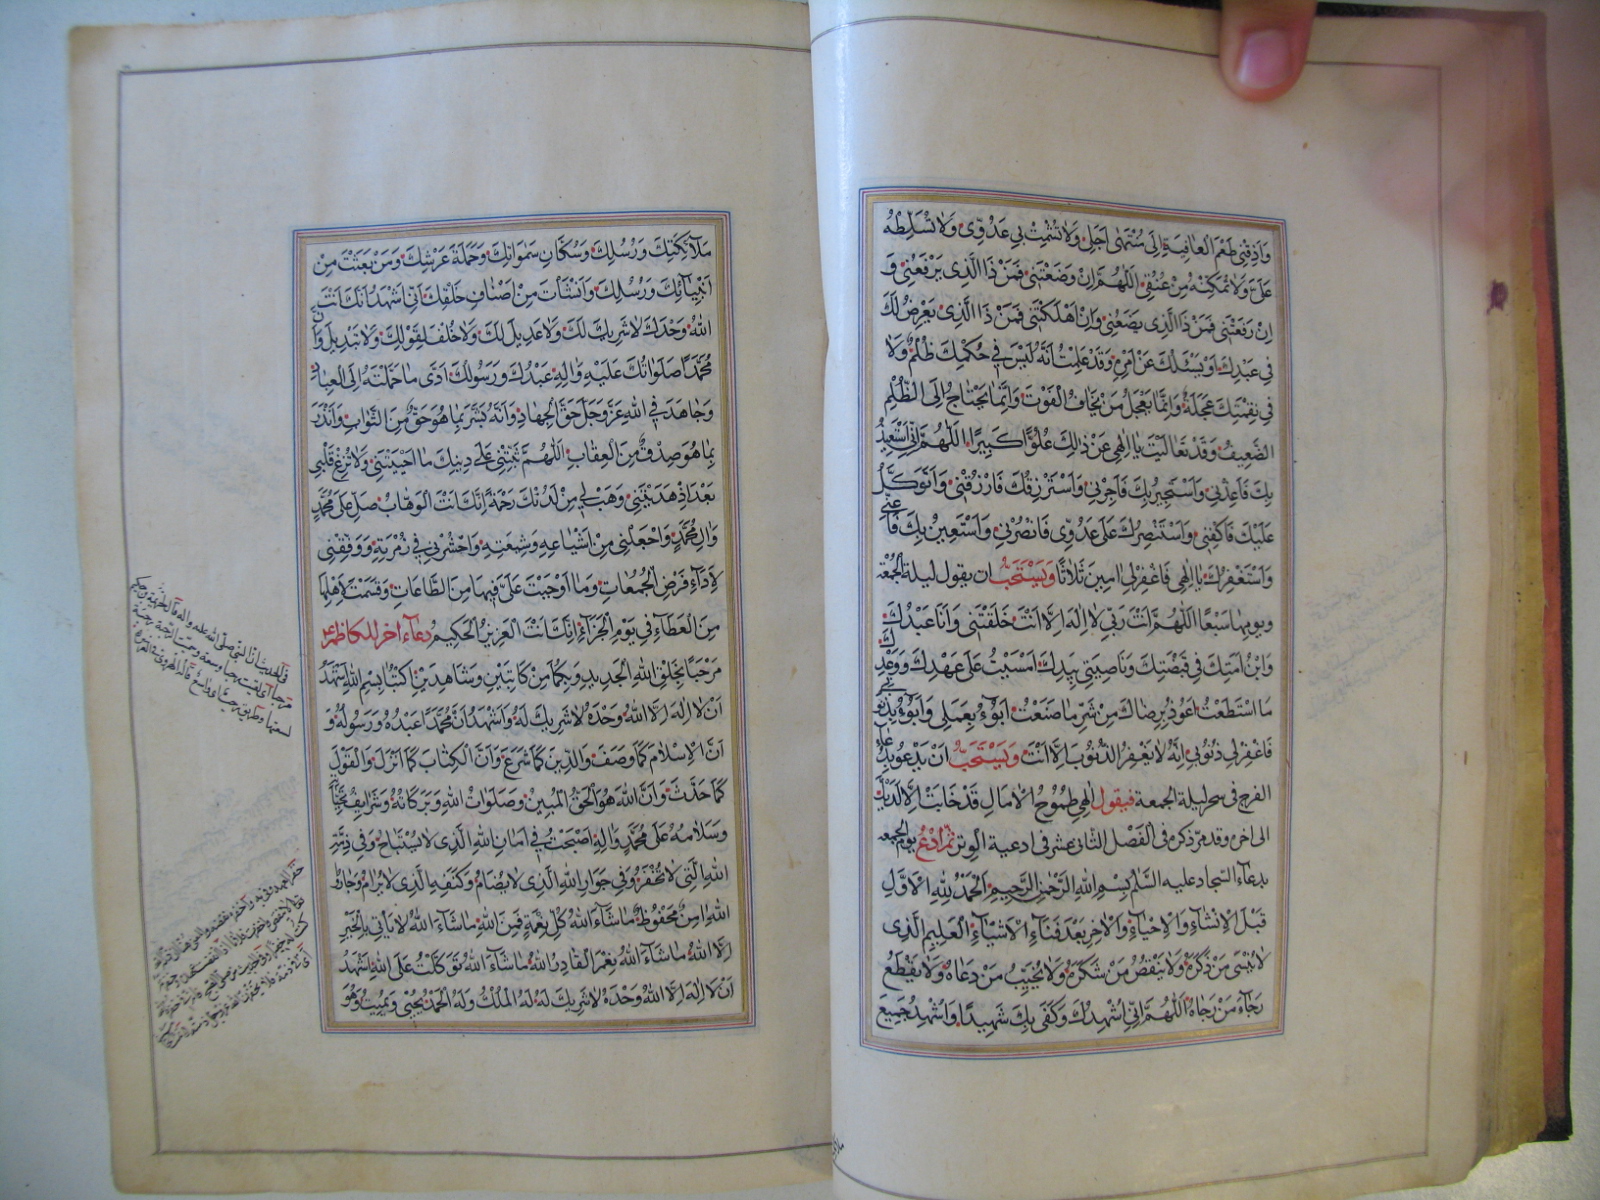 وَاَذِقْنِي طَعْمَ الْعَافِيَةِ اِلٰى مُنْتَهٰى اَجَلِي وَلَا تُشْمِتْ بِي عَدُوِّي وَلَا تُسَلِّطْهُ
عَلَيَّ وَلَا تُمَكِّنْهُ مِنْ عُنُقِي اَللّٰهُمَّ اِنْ وَضَعْتَنِي فَمَنْ ذَا الَّذِي يَرْفَعُنِي وَ
اِنْ رَفَعْتَنِي فَمَنْ ذَا الَّذِي يَضَعُنِي وَاِنْ اَهْلَكْتَنِي فَمَنْ ذَا الَّذِي يَعْرِضُ لَكَ
فِي عَبْدِكَ اَوْ يَسْئَلُكَ عَنْ اَمْرِي وَقَدْ عَلِمْتُ اَنَّهُ لَيْسَ فِي حُكْمِكَ ظُلْمٌ وَلَا
فِي نِقْمَتِكَ عَجَلَةٌ وَاِنَّمَا يَعْجَلُ مَنْ يَخَافُ الْفَوْتَ وَاِنَّمَا يَحْتَاجُ اِلَى الظُّلْمِ
الضَّعِيفُ وَقَدْ تَعَالَيْتَ يَا اِلٰهِي عَنْ ذٰلِكَ عُلُوًّا كَبِيرًا اَللّٰهُمَّ اِنِّي اَسْتَعِيذُ
بِكَ فَاَعِذْنِي وَاَسْتَجِيرُ بِكَ فَاَجِرْنِي وَاَسْتَرْزِقُكَ فَارْزُقْنِي وَاَتَوَكَّلُ
عَلَيْكَ فَاكْفِنِي وَاَسْتَنْصِرُكَ عَلٰى عَدُوِّي فَانْصُرْنِي وَاَسْتَعِينُ بِكَ فَاَعِنِّي
وَاَسْتَغْفِرُكَ يَا اِلٰهِي فَاغْفِرْ لِي اٰمِينَ ثَلَاثًا وَيُسْتَحَبُّ ان يقول ليلة الجمعة
ويومها سَبْعًا اَللّٰهُمَّ اَنْتَ رَبِّي لَا اِلٰهَ اِلَّا اَنْتَ خَلَقْتَنِي وَاَنَا عَبْدُكَ
وَابْنُ اَمَتِكَ فِي قَبْضَتِكَ وَنَاصِيَتِي بِيَدِكَ اَمْسَيْتُ عَلٰى عَهْدِكَ وَوَعْدِكَ
مَا اسْتَطَعْتُ اَعُوذُ بِرِضَاكَ مِنْ شَرِّ مَا صَنَعْتُ اَبُوءُ بِعَمَلِي وَاَبُوءُ بِذَنْبِي
فَاغْفِرْ لِي ذُنُوبِي اِنَّهُ لَا يَغْفِرُ الذُّنُوبَ اِلَّا اَنْتَ وَيُسْتَحَبُّ اَنْ يَدْعُوَ بِدُعَاءِ
الفرج في سحر ليلة الجمعة فيقول اِلٰهِي طُمُوحُ الْاٰمَالِ قَدْ خَابَتْ اِلَّا لَدَيْكَ
الى اخره وقد مرّ ذكره في الفصل الثاني عشر في ادعية الوتر ثُمَّ ادْعُ يوم الجمعة
بدعاء السجاد عليه السَّلام بِسْمِ اللّٰهِ الرَّحْمٰنِ الرَّحِيمِ اَلْحَمْدُ لِلّٰهِ الْاَوَّلِ
قَبْلَ الْاِنْشَاءِ وَالْاِحْيَاءِ وَالْاٰخِرِ بَعْدَ فَنَاءِ الْاَشْيَاءِ الْعَلِيمِ الَّذِي
لَا يَنْسٰى مَنْ ذَكَرَهُ وَلَا يَنْقُصُ مَنْ شَكَرَهُ وَلَا يُخَيِّبُ مَنْ دَعَاهُ وَلَا يَقْطَعُ
رَجَاءَ مَنْ رَجَاهُ اَللّٰهُمَّ اِنِّي اُشْهِدُكَ وَكَفٰى بِكَ شَهِيدًا وَاُشْهِدُ جَمِيعَ
مَلَآئِكَتِكَ وَرُسُلِكَ وَسُكَّانِ سَمٰوَاتِكَ وَحَمَلَةَ عَرْشِكَ وَمَنْ بَعَثْتَ مِنْ
اَنْبِيَآئِكَ وَرُسُلِكَ وَاَنْشَأْتَ مِنْ اَصْنَافِ خَلْقِكَ اَنِّي اَشْهَدُ اَنَّكَ اَنْتَ
اللّٰهُ وَحْدَكَ لَا شَرِيكَ لَكَ وَلَا عَدِيلَ لَكَ وَلَا خُلْفَ لِقَوْلِكَ وَلَا تَبْدِيلَ وَاَنَّ
مُحَمَّدًا صَلَوَاتُكَ عَلَيْهِ وَاٰلِهِ عَبْدُكَ وَرَسُولُكَ اَدّٰى مَا حَمَّلْتَهُ اِلَى الْعِبَادِ
وَجَاهَدَ فِي اللّٰهِ عَزَّ وَجَلَّ حَقَّ الْجِهَادِ وَاَنَّهُ بَشَّرَ بِمَا هُوَ حَقٌّ مِنَ الثَّوَابِ وَاَنْذَرَ
بِمَا هُوَ صِدْقٌ مِنَ الْعِقَابِ اَللّٰهُمَّ ثَبِّتْنِي عَلٰى دِينِكَ مَا اَحْيَيْتَنِي وَلَا تُزِغْ قَلْبِي
بَعْدَ اِذْ هَدَيْتَنِي وَهَبْ لِي مِنْ لَدُنْكَ رَحْمَةً اِنَّكَ اَنْتَ الْوَهَّابُ صَلِّ عَلٰى مُحَمَّدٍ
وَاٰلِ مُحَمَّدٍ وَاجْعَلْنِي مِنْ اَشْيَاعِهِ وَشِيعَتِهِ وَاحْشُرْنِي فِي زُمْرَتِهِ وَوَفِّقْنِي
لِاَدَاءِ فَرْضِ الْجُمُعَاتِ وَمَا اَوْجَبْتَ عَلَيَّ فِيهَا مِنَ الطَّاعَاتِ وَقَسَمْتَ لِاَهْلِهَا
مِنَ الْعَطَاءِ فِي يَوْمِ الْجَزَاءِ اِنَّكَ اَنْتَ الْعَزِيزُ الْحَكِيمُ دعاء اخر للكاظم ع
مَرْحَبًا بِخَلْقِ اللّٰهِ الْجَدِيدِ وَبِكُمَا مِنْ كَاتِبَيْنِ وَشَاهِدَيْنِ اُكْتُبَا بِسْمِ اللّٰهِ اَشْهَدُ
اَنْ لَا اِلٰهَ اِلَّا اللّٰهُ وَحْدَهُ لَا شَرِيكَ لَهُ وَاَشْهَدُ اَنَّ مُحَمَّدًا عَبْدُهُ وَرَسُولُهُ وَ
اَنَّ الْاِسْلَامَ كَمَا وَصَفَ وَالدِّينَ كَمَا شَرَعَ وَاَنَّ الْكِتَابَ كَمَا اَنْزَلَ وَالْقَوْلَ
كَمَا حَدَّثَ وَاَنَّ اللّٰهَ هُوَ الْحَقُّ الْمُبِينُ وَصَلَوَاتُ اللّٰهِ وَبَرَكَاتُهُ وَشَرَايِفُ تَحِيَّاتِهِ
وَسَلَامُهُ عَلٰى مُحَمَّدٍ وَاٰلِهِ اَصْبَحْتُ فِي اَمَانِ اللّٰهِ الَّذِي لَا يُسْتَبَاحُ وَفِي ذِمَّةِ
اللّٰهِ الَّتِي لَا تُخْفَرُ وَفِي جِوَارِ اللّٰهِ الَّذِي لَا يُضَامُ وَكَنَفِهِ الَّذِي لَا يُرَامُ وَجَارُ
اللّٰهِ اٰمِنٌ مَحْفُوظٌ مَا شَاءَ اللّٰهُ كُلُّ نِعْمَةٍ فَمِنَ اللّٰهِ مَا شَاءَ اللّٰهُ لَا يَأْتِي بِالْخَيْرِ
اِلَّا اللّٰهُ مَا شَاءَ اللّٰهُ نِعْمَ الْقَادِرُ اللّٰهُ مَا شَاءَ اللّٰهُ تَوَكَّلْتُ عَلَى اللّٰهِ اَشْهَدُ
اَنْ لَا اِلٰهَ اِلَّا اللّٰهُ وَحْدَهُ لَا شَرِيكَ لَهُ لَهُ الْمُلْكُ وَلَهُ الْحَمْدُ يُحْيِي وَيُمِيتُ وَهُوَ